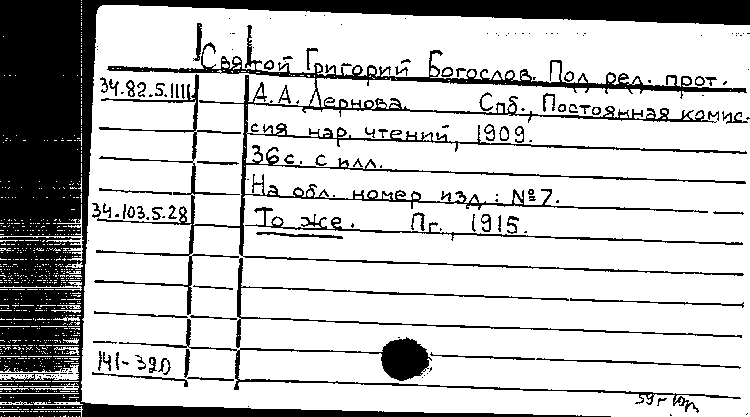 Святой Григорий Богослов. Под ред. прот.
34.82.5.1111 А.А. Дернова. Спб., Постоянная комис-
сия нар. чтений, 1909.
36с. с илл.
На обл. номер изд.: №7.
34.103.5.28 То же. Пг., 1915.
141-390